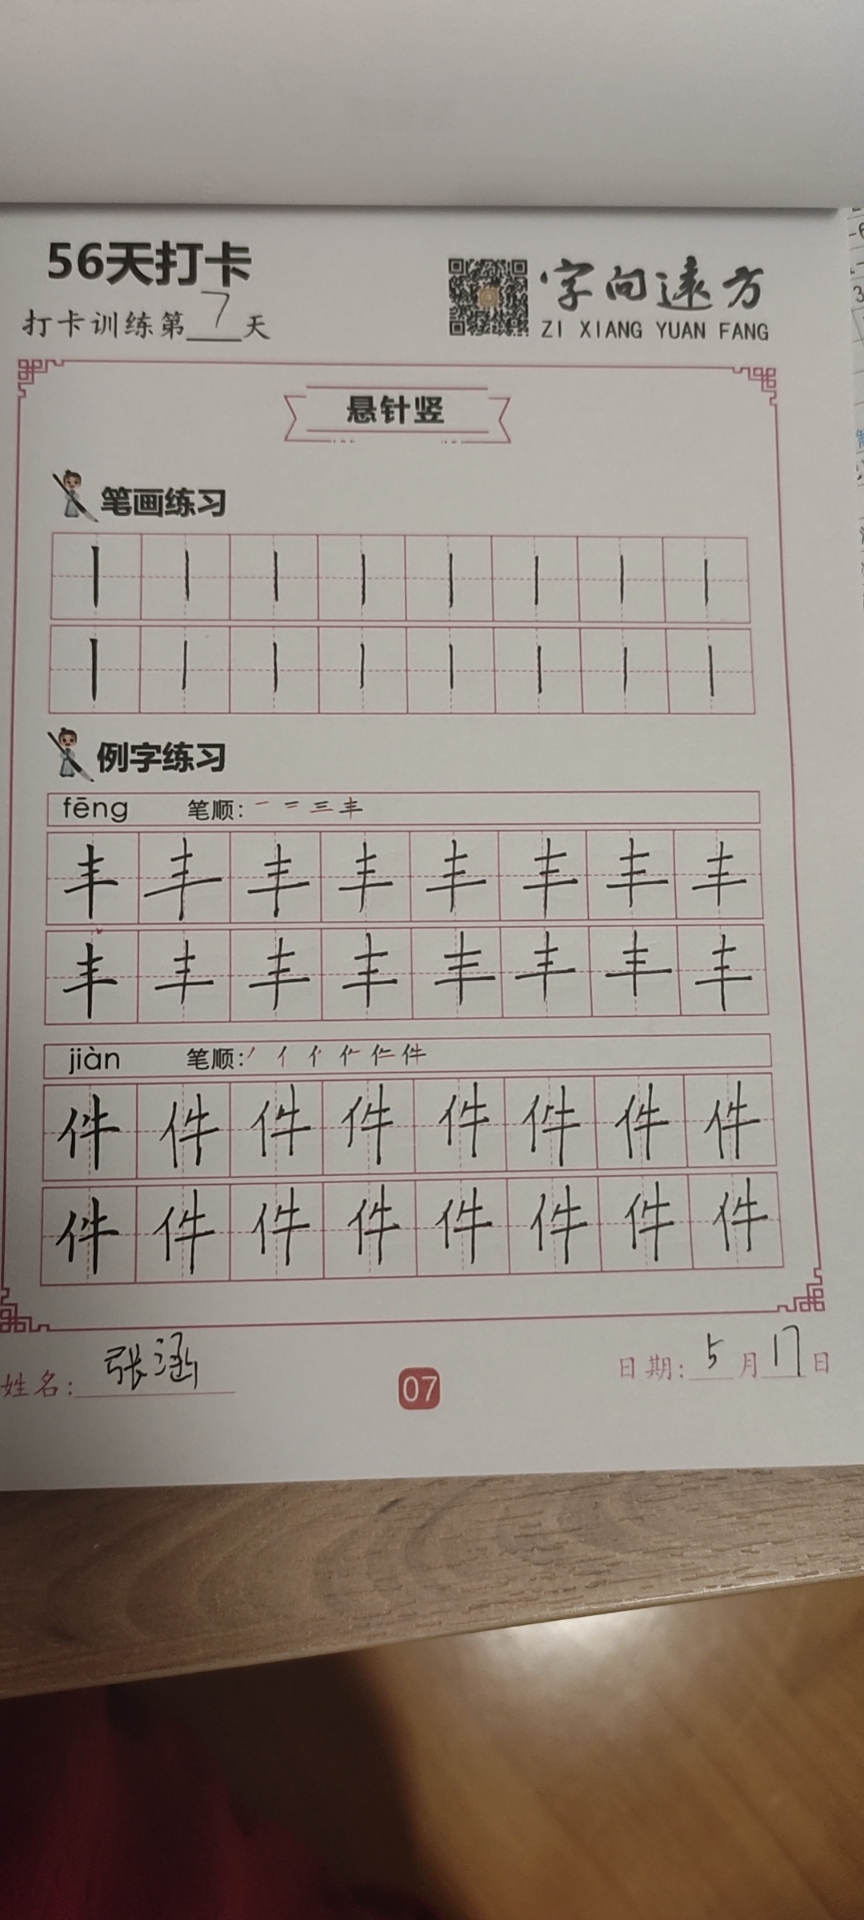 56天打卡
打卡训练第7天
字向远方
ZI XIANG YUAN FANG
悬针竖
笔画练习
丨 丨 丨 丨 丨 丨 丨 丨
丨 丨 丨 丨 丨 丨 丨 丨
例字练习
fēng 笔顺: 一 二 三 丰
丰 丰 丰 丰 丰 丰 丰 丰
丰 丰 丰 丰 丰 丰 丰 丰
jiàn 笔顺:
件 件 件 件 件 件 件 件
件 件 件 件 件 件 件 件
姓名: 张涵
07
日期: 5月17日